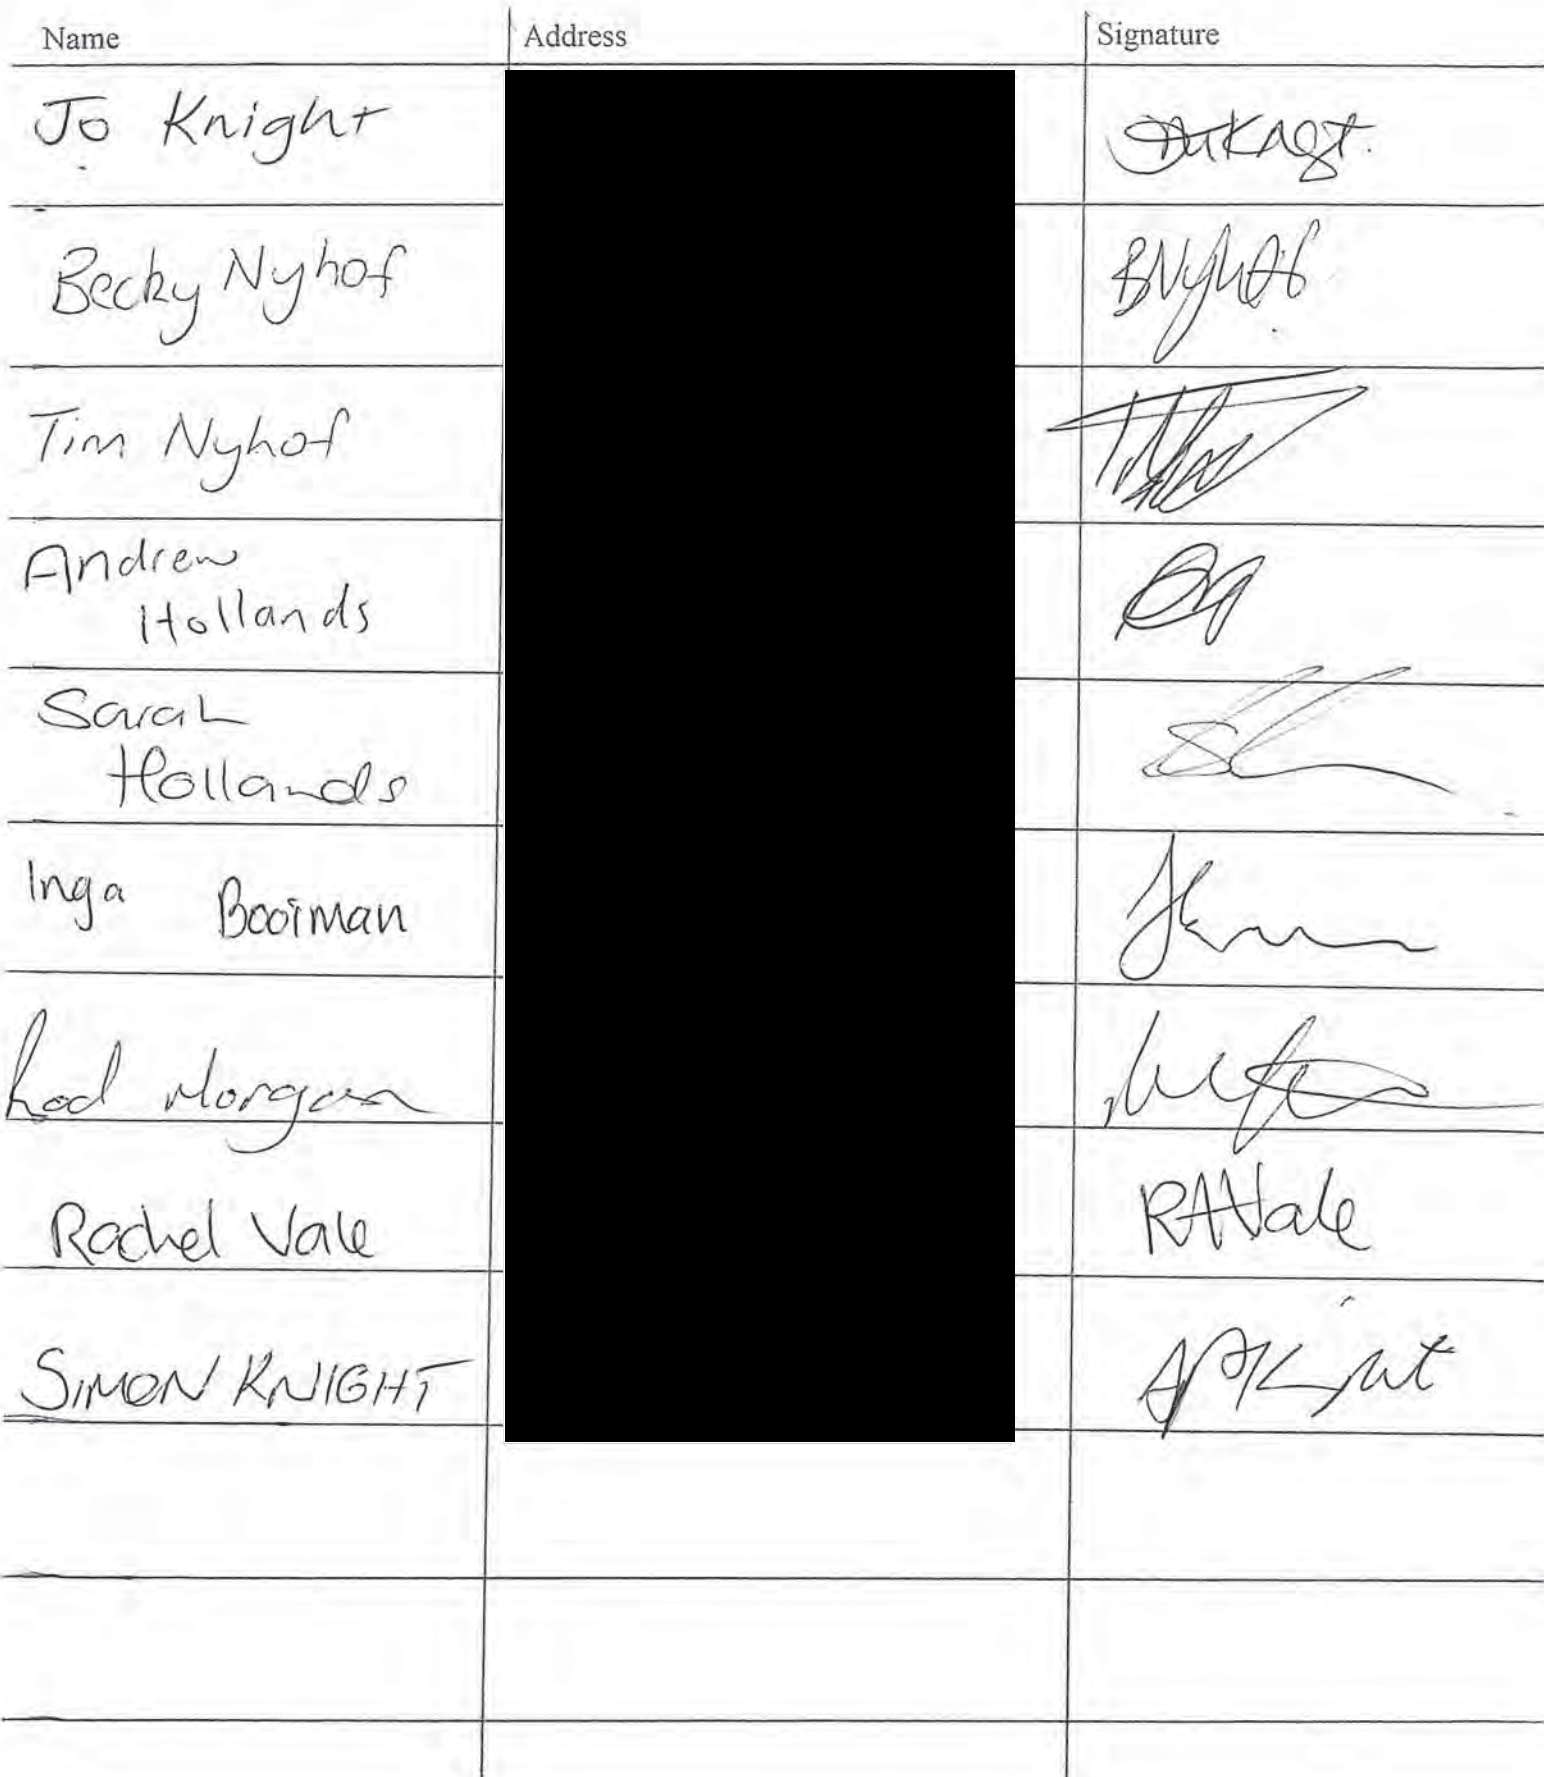 Name Address Signature
Jo Knight
Becky Nyhof BNyhof
Tim Nyhof
Andrew
Hollands
Sarah
Hollands
Inga Booiman
Rod Morgan
Rachel Vale RAVale
SIMON KNIGHT